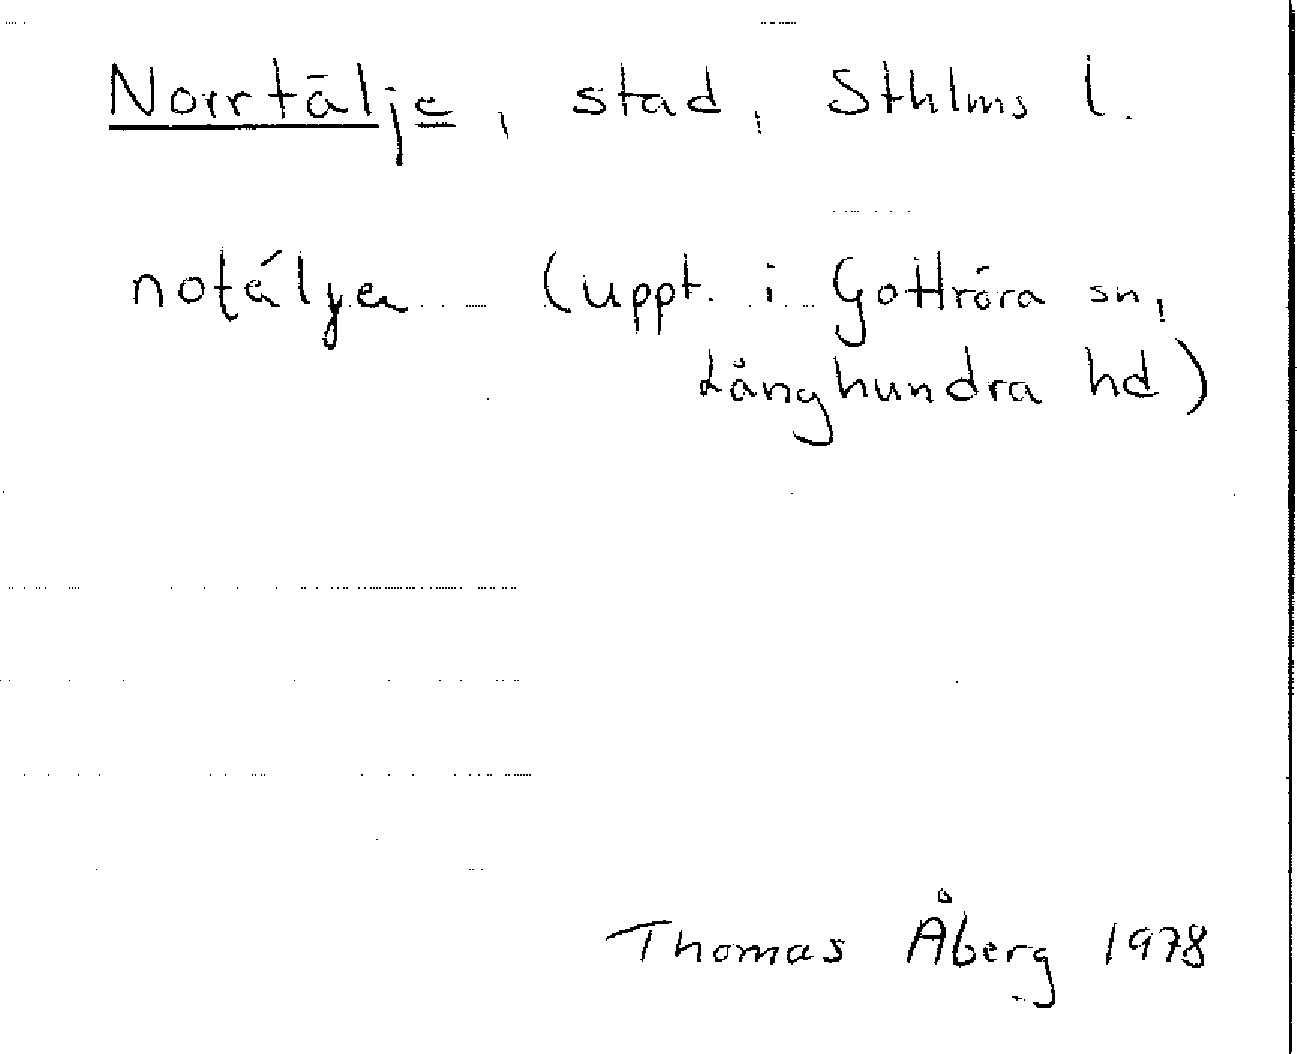 Norrtälje, stad, Sthlms l.
notélyea (uppt. i Gottröra sn,
Långhundra hd)
Thomas Åberg 1978